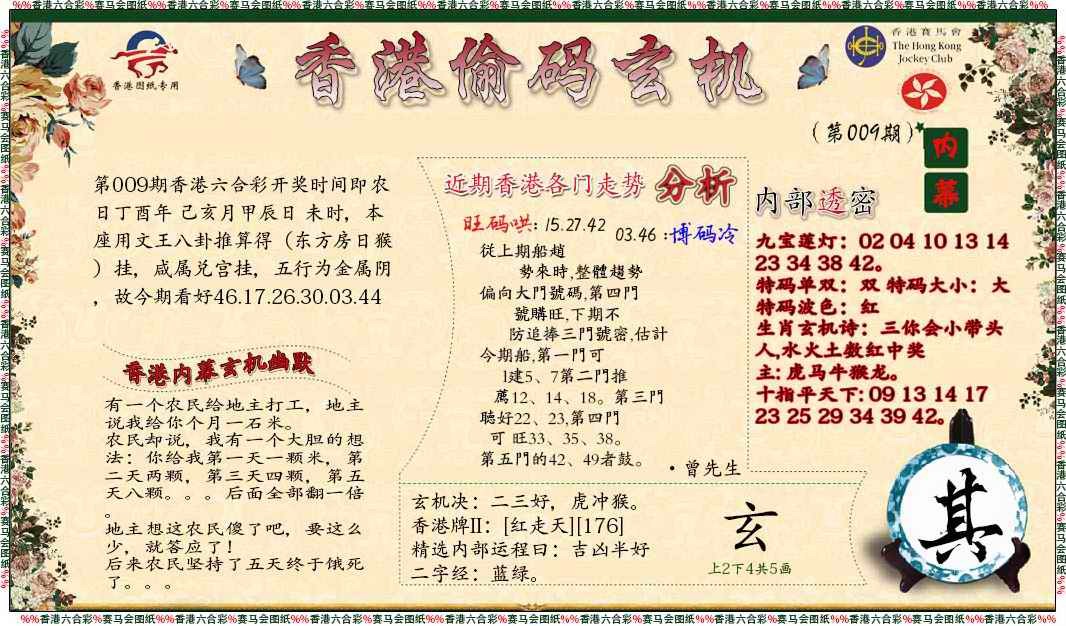 %%香港六合彩%赛马会图纸%%香港六合彩%赛马会图纸%%香港六合彩%赛马会图纸%%香港六合彩%赛马会图纸%%香港六合彩%赛马会图纸%%香港六合彩%赛马会图纸%%香港六合彩%赛马会图纸%%香港六合彩%%
香港图纸专用
香港偷码玄机
香港賽馬會
The Hong Kong
Jockey Club
(第009期)
内
幕
第009期香港六合彩开奖时间即农
日丁酉年 己亥月甲辰日 未时，本
座用文王八卦推算得（东方房日猴
）挂，咸属兑宫挂，五行为金属阴
，故今期看好46.17.26.30.03.44
香港内幕玄机幽默
有一个农民给地主打工，地主
说我给你个月一石米。
农民却说，我有一个大胆的想
法：你给我第一天一颗米，第
二天两颗，第三天四颗，第五
天八颗。。。后面全部翻一倍
。
地主想这农民傻了吧，要这么
少，就答应了！
后来农民坚持了五天终于饿死
了。。。
近期香港各门走势 分析
旺码哄: 15.27.42
03.46 :博码冷
從上期船趙
勢來時,整體趨勢
偏向大門號碼,第四門
號購旺,下期不
防追捧三門號密,估計
今期船,第一門可
l建5、7第二門推
薦12、14、18。第三門
聽好22、23,第四門
可 旺33、35、38。
第五門的42、49者鼓。
·曾先生
玄机决：二三好，虎冲猴。
香港牌II：[红走天][176]
精选内部运程曰：吉凶半好
二字经：蓝绿。
玄
上2下4共5画
内部透密
九宝莲灯：02 04 10 13 14
23 34 38 42。
特码单双：双 特码大小：大
特码波色：红
生肖玄机诗：三你会小带头
人,水火土数红中奖
主: 虎马牛猴龙。
十指平天下: 09 13 14 17
23 25 29 34 39 42。
其
%%香港六合彩%赛马会图纸%%香港六合彩%赛马会图纸%%香港六合彩%赛马会图纸%%香港六合彩%赛马会图纸%%香港六合彩%赛马会图纸%%香港六合彩%赛马会图纸%%香港六合彩%赛马会图纸%%香港六合彩%%